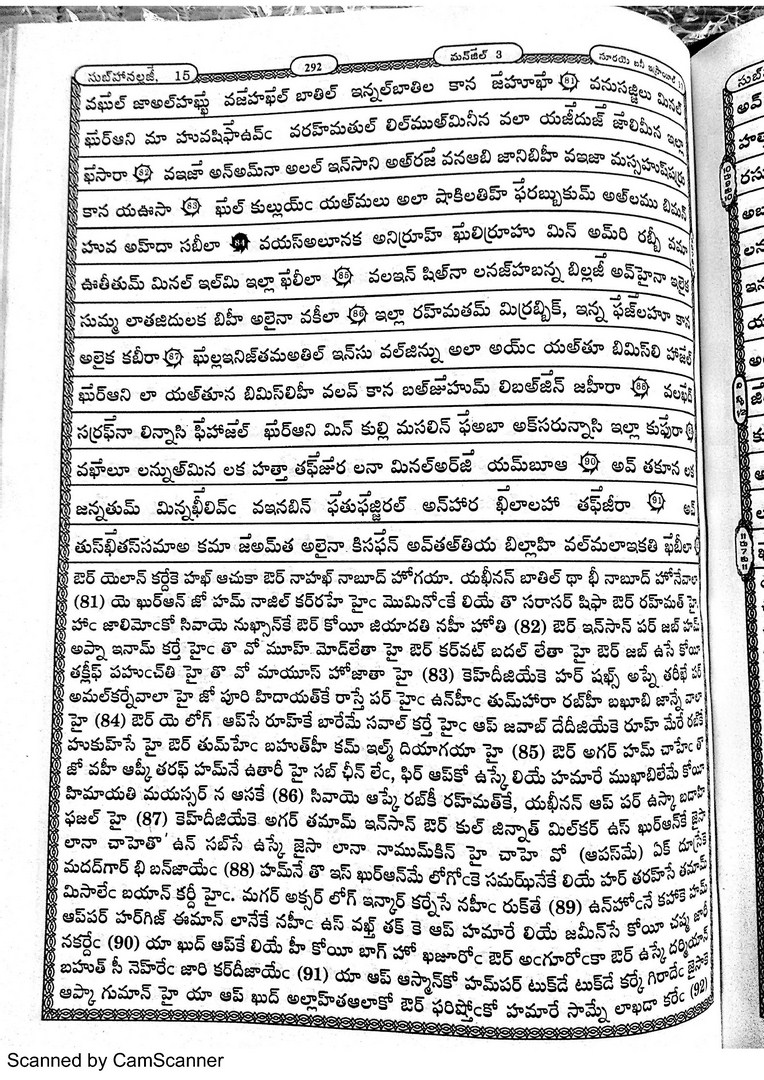 సుబ్‌హానల్లజీ, 15
292
మన్‌జిల్ 3
సూరయె బనీ
వఖుల్ జాఅల్‌హఖ్ఖు వజేహఖేల్ బాతిల్ ఇన్నల్‌బాతిల కాన జేహూఖా 81 వనుసజ్జిలు మినల్
ఖుర్‌ఆని మా హువషిఫాఉవ్‌c వరహ్‌మతుల్ లిల్‌ముఅ్‌మినీన వలా యజీదుజ్ జాలిమీన ఇల్లా
ఖేసారా 82 వఇజా అన్‌అమ్‌నా అలల్ ఇన్‌సాని అఅ్‌రజే వనఆబి జానిబిహీ వఇజా మస్సహుష్‌షర్రు
కాన యఊసా 83 ఖుల్ కుల్లుయ్‌c యఅ్‌మలు అలా షాకిలతిహ్ ఫరబ్బుకుమ్ అఅ్‌లము బిమన్
హువ అహ్‌దా సబీలా 84 వయస్‌అలూనక అనిర్రూహ్ ఖులిర్రూహు మిన్ అమ్‌రి రబ్బీ వమా
ఊతీతుమ్ మినల్ ఇల్‌మి ఇల్లా ఖేలీలా 85 వలఇన్ షిఅ్‌నా లనజ్‌హబన్న బిల్లజీ అవ్‌హైనా ఇలైక
సుమ్మ లాతజిదులక బిహీ అలైనా వకీలా 86 ఇల్లా రహ్‌మతమ్ మిర్రబ్బిక్, ఇన్న ఫజ్‌లహూ కాన
అలైక కబీరా 87 ఖుల్లఇనిజ్‌తమఅతిల్ ఇన్‌సు వల్‌జిన్ను అలా అయ్‌c యఅ్‌తూ బిమిస్‌లి హాజేల్
ఖుర్‌ఆని లా యఅ్‌తూన బిమిస్‌లిహీ వలవ్ కాన బఅ్‌జుహుమ్ లిబఅ్‌జిన్ జహీరా 88 వలఖేద్
సర్రఫ్‌నా లిన్నాసి ఫీహాజేల్ ఖుర్‌ఆని మిన్ కుల్లి మసలిన్ ఫఅబా అక్‌సరున్నాసి ఇల్లా కుఫూరా
వఖాలూ లన్నుఅ్‌మిన లక హత్తా తఫ్‌జుర లనా మినల్‌అర్‌జి యమ్‌బూఆ 90 అవ్ తకూన లక
జన్నతుమ్ మిన్నఖీలివ్‌c వఇనబిన్ ఫతుఫజ్జిరల్ అన్‌హార ఖిలాలహా తఫ్‌జీరా 91 అవ్
తుస్‌ఖితస్‌సమాఅ కమా జేఅమ్‌త అలైనా కిసఫన్ అవ్‌తఅ్‌తియ బిల్లాహి వల్‌మలాఇకతి ఖేబీలా
ఔర్ యెలాన్ కర్దేకె హఖ్ ఆచుకా ఔర్ నాహఖ్ నాబూద్ హోగయా. యఖీనన్ బాతిల్ థా భీ నాబూద్ హోనేవాలా
(81) యె ఖుర్‌ఆన్ జో హమ్ నాజిల్ కర్‌రహే హైc మొమినోcకే లియే తొ సరాసర్ షిఫా ఔర్ రహ్మత్ హై
హాc జాలిమోcకో సివాయె నుఖ్సాన్‌కే ఔర్ కోయీ జియాదతి నహీ హోతి (82) ఔర్ ఇన్‌సాన్ పర్ జబ్ హమ్
అప్నా ఇనామ్ కర్తే హైc తొ వో మూహ్ మోడ్‌లేతా హై ఔర్ కర్‌వట్ బదల్ లేతా హై ఔర్ జబ్ ఉసే కోయీ
తక్లీఫ్ పహుcచ్‌తి హై తొ వో మాయూస్ హోజాతా హై (83) కెహ్‌దీజియేకె హర్ షఖ్స్ అప్నే తరీఖే పర్
అమల్‌కర్నేవాలా హై జో పూరి హిదాయత్‌కే రాస్తే పర్ హైc ఉన్‌హీc తుమ్‌హారా రబ్‌హీ బఖూబి జాన్నే వాలా
హై (84) ఔర్ యె లోగ్ ఆప్‌సే రూహ్‌కే బారేమే సవాల్ కర్తే హైc ఆప్ జవాబ్ దేదీజియేకె రూహ్ మేరే రబ్‌కే
హుకుహ్‌సే హై ఔర్ తుమ్‌హేc బహుత్‌హీ కమ్ ఇల్మ్ దియాగయా హై (85) ఔర్ అగర్ హమ్ చాహేc తొ
జో వహీ ఆప్కీ తరఫ్ హమ్‌నే ఉతారీ హై సబ్ ఛీన్ లేc, ఫిర్ ఆప్‌కో ఉస్కే లియే హమారే ముఖాబిలేమే కోయీ
హిమాయతి మయస్సర్ న ఆసకే (86) సివాయె ఆప్కే రబ్‌కీ రహ్మత్‌కే, యఖీనన్ ఆప్ పర్ ఉస్కా బడాహి
ఫజల్ హై (87) కెహ్‌దీజియేకె అగర్ తమామ్ ఇన్‌సాన్ ఔర్ కుల్ జిన్నాత్ మిల్‌కర్ ఉస్ ఖుర్‌ఆన్‌కే జైసా
లానా చాహెతొ ఉన్ సబ్‌సే ఉస్కే జైసా లానా నాముమ్‌కిన్ హై చాహె వో (ఆపస్‌మే) ఏక్ దూస్రేకే
మదద్‌గార్ భి బన్‌జాయేc (88) హమ్‌నే తొ ఇస్ ఖుర్‌ఆన్‌మే లోగోcకె సమఝ్‌నేకే లియే హర్ తరహ్‌సే తమామ్
మిసాలేc బయాన్ కర్దీ హైc. మగర్ అక్సర్ లోగ్ ఇన్కార్ కర్నేసే నహీc రుక్‌తే (89) ఉన్‌హోcనే కహాకె హమ్
ఆప్‌పర్ హర్‌గిజ్ ఈమాన్ లానేకే నహీc ఉస్ వఖ్త్ తక్ కె ఆప్ హమారే లియే జమీన్‌సే కోయీ చష్మ జారీ
నకర్దేc (90) యా ఖుద్ ఆప్‌కే లియే హీ కోయీ బాగ్ హో ఖజూరోc ఔర్ అంగూరోcకా ఔర్ ఉస్కే దర్మియాన్
బహుత్ సీ నెహ్‌రేc జారి కర్‌దీజాయేc (91) యా ఆప్ ఆస్మాన్‌కో హమ్‌పర్ టుక్‌డే టుక్‌డే కర్కే గిరాదేc జైసాకె
ఆప్కా గుమాన్ హై యా ఆప్ ఖుద్ అల్లాహ్‌తఆలాకో ఔర్ ఫరిష్తోcకో హమారే సామ్నే లాఖడా కరేc (92)
Scanned by CamScanner